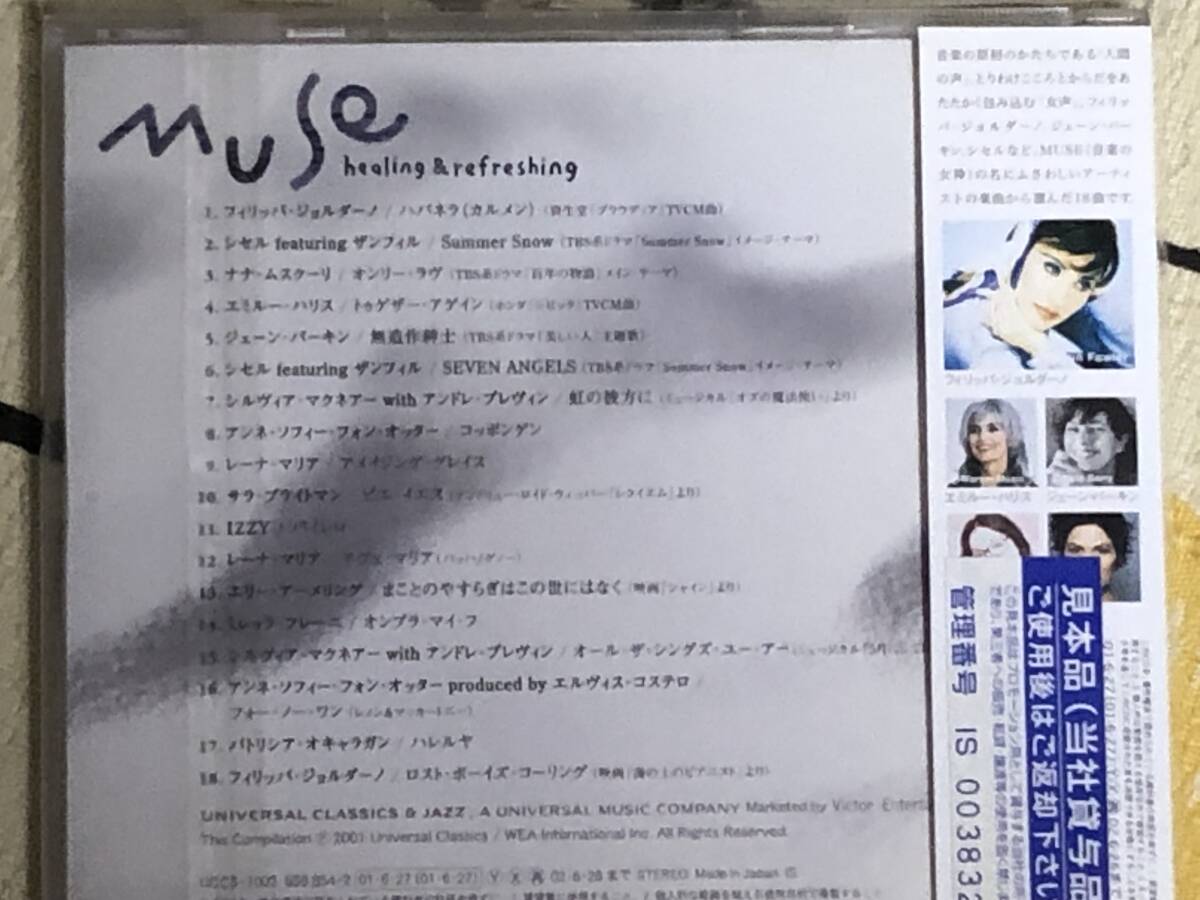 muse
healing & refreshing
1. フィリッパ・ジョルダーノ / ハバネラ（カルメン）（資生堂「プラウディア」TVCM曲）
2. シセル featuring ザンフィル / Summer Snow（TBS系ドラマ「Summer Snow」イメージ・テーマ）
3. ナナ・ムスクーリ / オンリー・ラヴ（TBS系ドラマ「百年の物語」メイン・テーマ）
4. エミルー・ハリス / トゥゲザー・アゲイン（ホンダ「シビック」TVCM曲）
5. ジェーン・バーキン / 無造作紳士（TBS系ドラマ「美しい人」主題歌）
6. シセル featuring ザンフィル / SEVEN ANGELS（TBS系ドラマ「Summer Snow」イメージ・テーマ）
7. シルヴィア・マクネアー with アンドレ・プレヴィン / 虹の彼方に（ミュージカル「オズの魔法使い」より）
8. アンネ・ソフィー・フォン・オッター / コッポンゲン
9. レーナ・マリア / アメイジング・グレイス
10. サラ・ブライトマン / ピエ・イエス（アンドリュー・ロイド・ウェッバー「レクイエム」より）
11. IZZY
12. レーナ・マリア / アヴェ・マリア（バッハ/グノー）
13. エリー・アーメリング / まことのやすらぎはこの世にはなく（映画「シャイン」より）
14. ミレッラ・フレーニ / オンブラ・マイ・フ
15. シルヴィア・マクネアー with アンドレ・プレヴィン / オール・ザ・シングズ・ユー・アー
16. アンネ・ソフィー・フォン・オッター produced by エルヴィス・コステロ /
フォー・ノー・ワン（レノン&マッカートニー）
17. パトリシア・オキャラガン / ハレルヤ
18. フィリッパ・ジョルダーノ / ロスト・ボーイズ・コーリング（映画「海の上のピアニスト」より）
UNIVERSAL CLASSICS & JAZZ, A UNIVERSAL MUSIC COMPANY Marketed by Victor
This Compilation ℗ 2001 Universal Classics / WEA International Inc. All Rights Reserved.
01・6・27 (01・6・27) 02・6・26まで STEREO Made in Japan
音楽の原初のかたちである「人間
の声」。とりわけこころとからだをあ
たたかく包み込む「女声」。フィリッ
パ・ジョルダーノ、ジェーン・バー
キン、シセルなど、MUSE（音楽の
女神）の名にふさわしいアーティ
ストの楽曲から選んだ18曲です
フィリッパ・ジョルダーノ
エミルー・ハリス
ジェーン・バーキン
見本品（当社貸与品
ご使用後はご返却下さい
管理番号 IS 003832